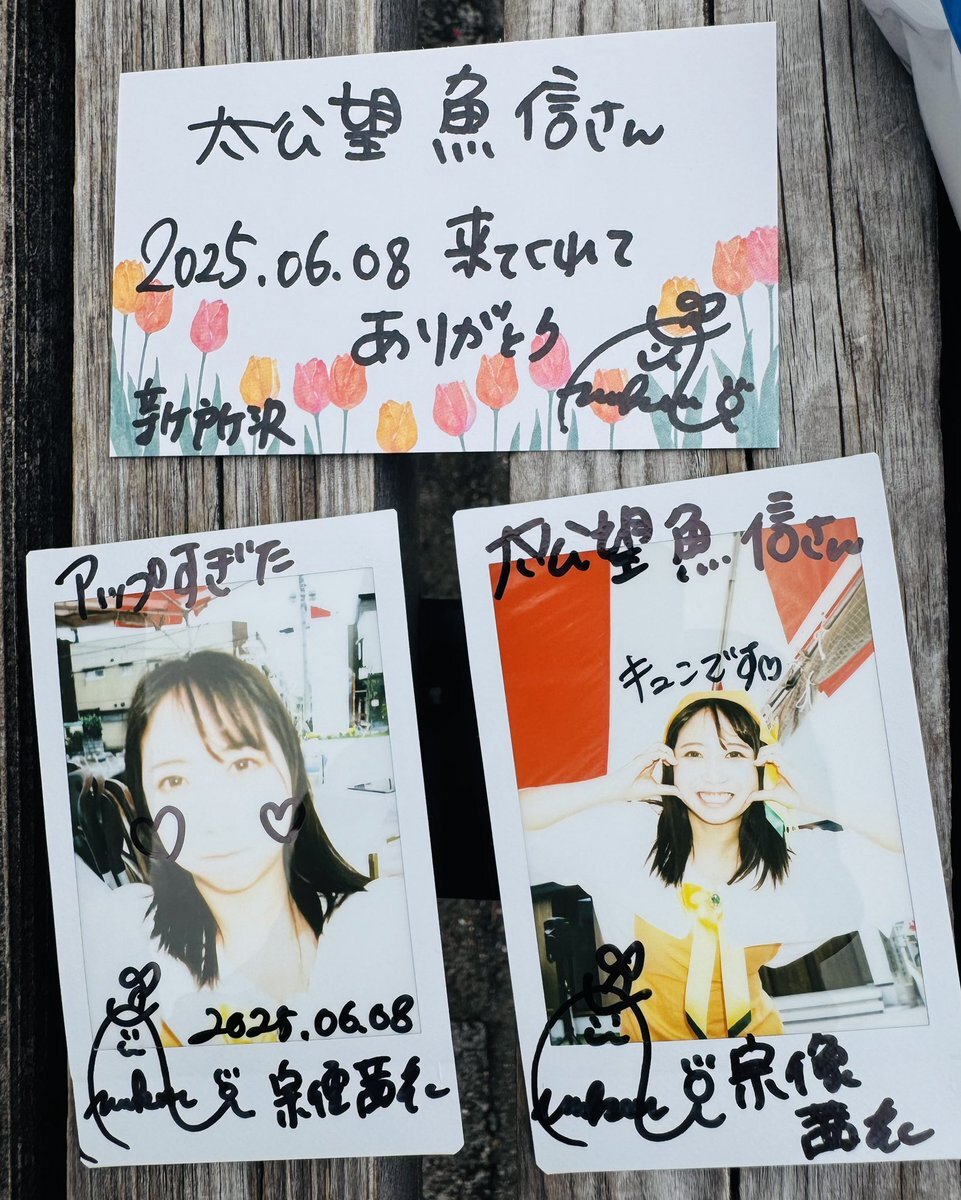 太公望 魚信さん
2025.06.08 来てくれて
ありがとう
新所沢
アップすぎた
2025.06.08
太公望 魚信さん
キュンです♡
宗像